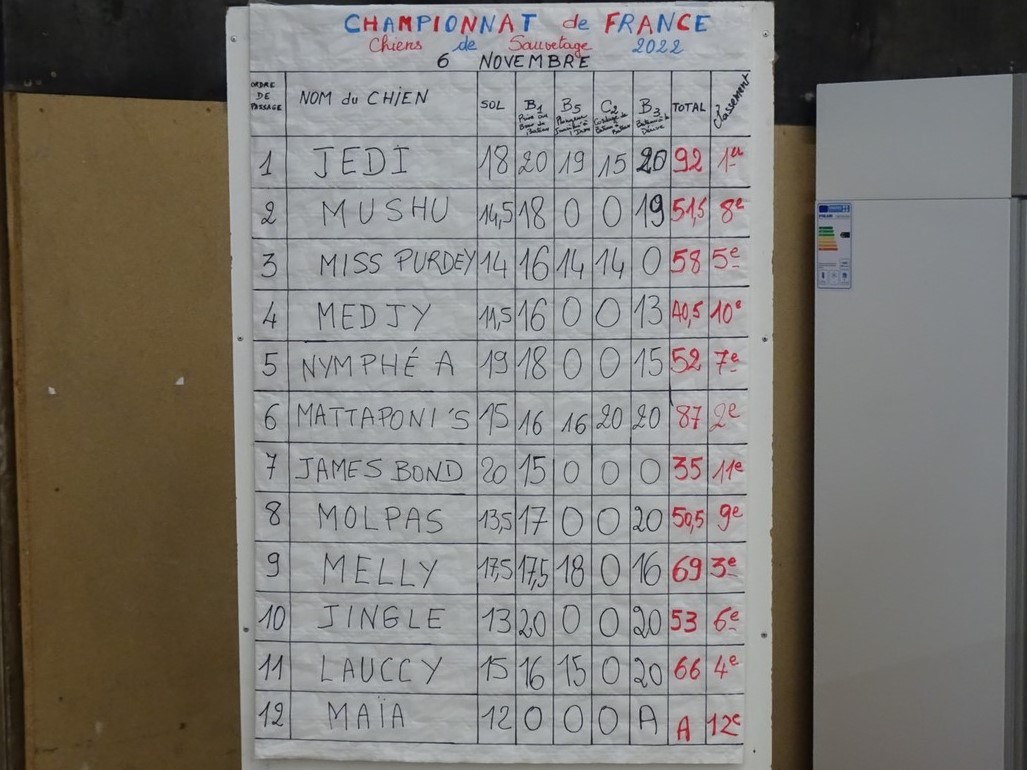 CHAMPIONNAT de FRANCE
Chiens de Sauvetage 2022
6 NOVEMBRE
ORDRE DE PASSAGE NOM du CHIEN SOL B1 B5 C2 B3 TOTAL Classement
1 JEDI 18 20 19 15 20 92 1er
2 MUSHU 14,5 18 0 0 19 51,5 8e
3 MISS PURDEY 14 16 14 14 0 58 5e
4 MEDJY 11,5 16 0 0 13 40,5 10e
5 NYMPHÉ A 19 18 0 0 15 52 7e
6 MATTAPONI'S 15 16 16 20 20 87 2e
7 JAMES BOND 20 15 0 0 0 35 11e
8 MOLPAS 13,5 17 0 0 20 50,5 9e
9 MELLY 17,5 17,5 18 0 16 69 3e
10 JINGLE 13 20 0 0 20 53 6e
11 LAUCCY 15 16 15 0 20 66 4e
12 MAÏA 12 0 0 0 A A 12e